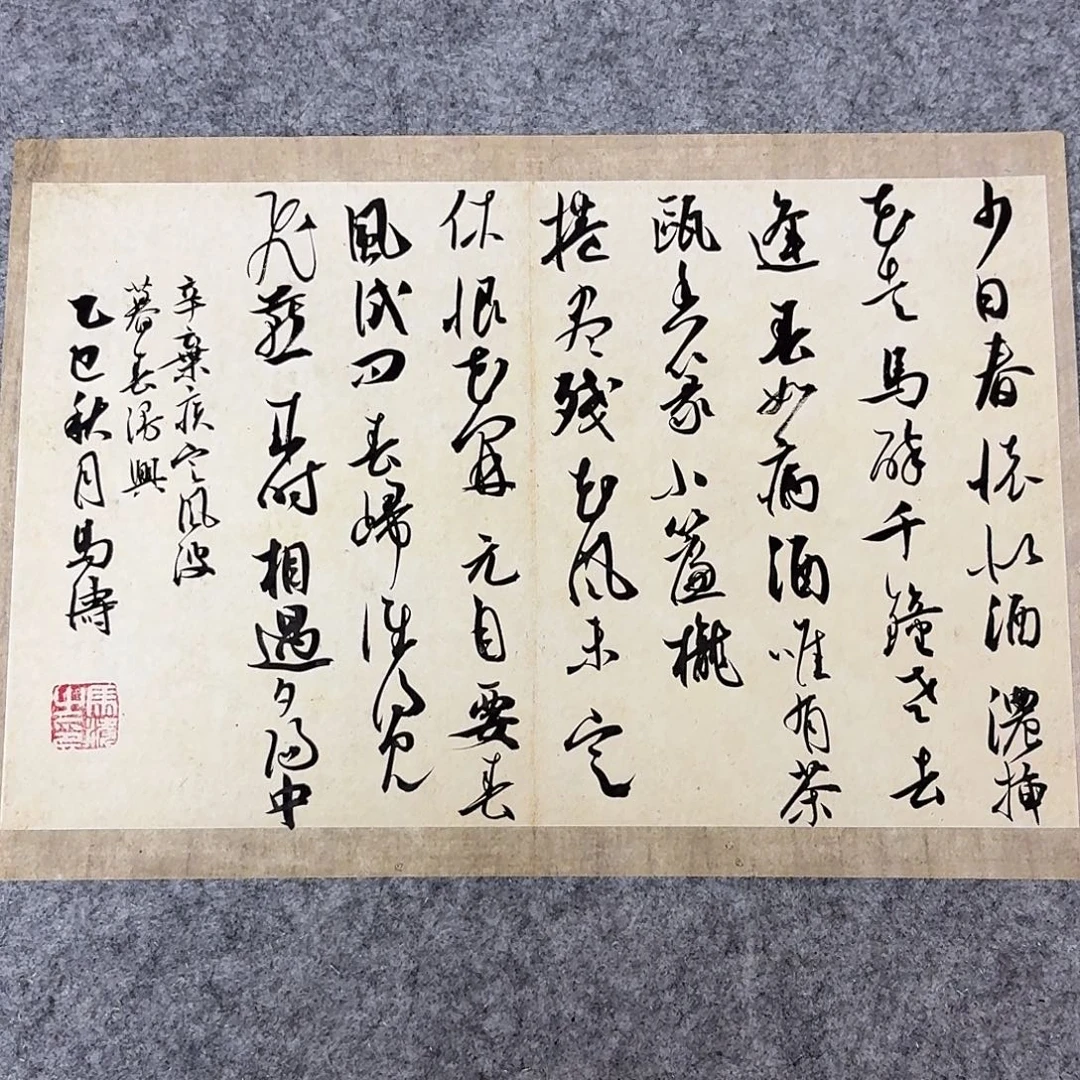 少日春懷似酒濃插
花走馬醉千鐘老去
逢春如病酒唯有茶
甌香篆小簾櫳
捲盡殘花風未定
休恨花開元自要春
風試問春歸誰得見
飛燕來時相遇夕陽中
辛棄疾定風波
暮春漫興
乙巳秋月馬濤
馬濤之印